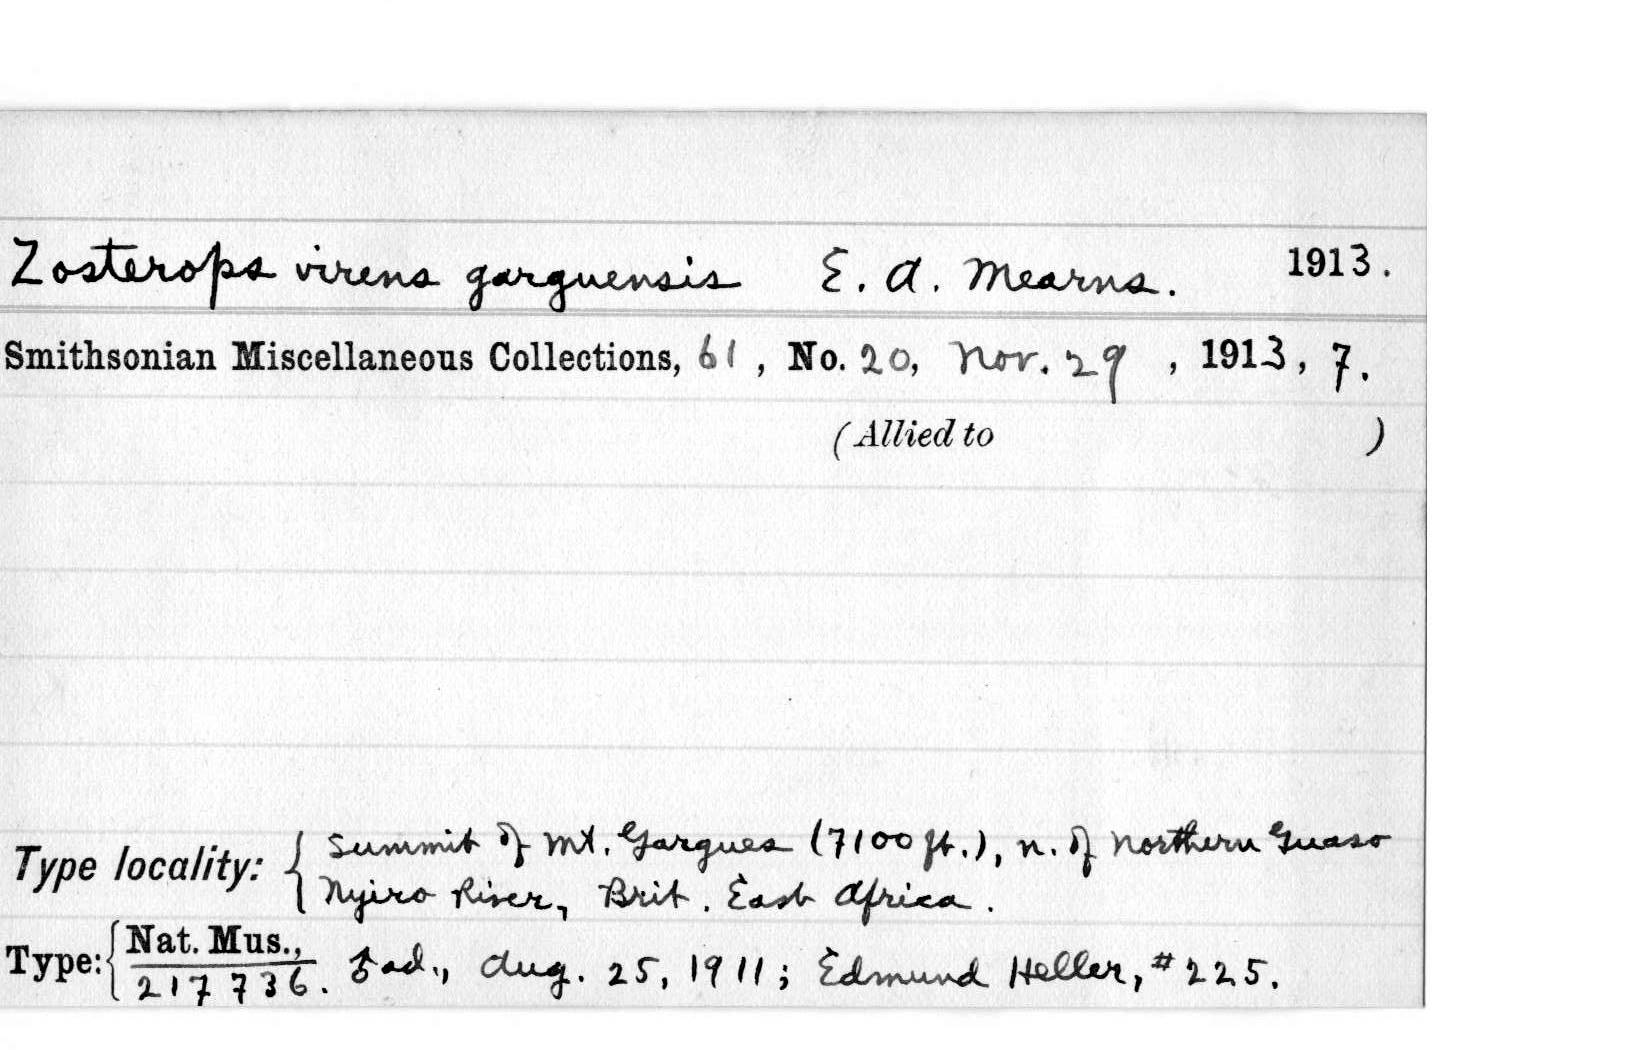 Zosterops virens garguensis E. A. Mearns. 1913.
Smithsonian Miscellaneous Collections, 61, No. 20, Nov. 29, 1913, 7.
(Allied to )
Type locality: { Summit of Mt. Gargues (7100 ft.), n. of Northern Guaso
Nyiro River, Brit. East Africa.
Type: { Nat. Mus.,
217736. ♂ ad., Aug. 25, 1911; Edmund Heller, #225.